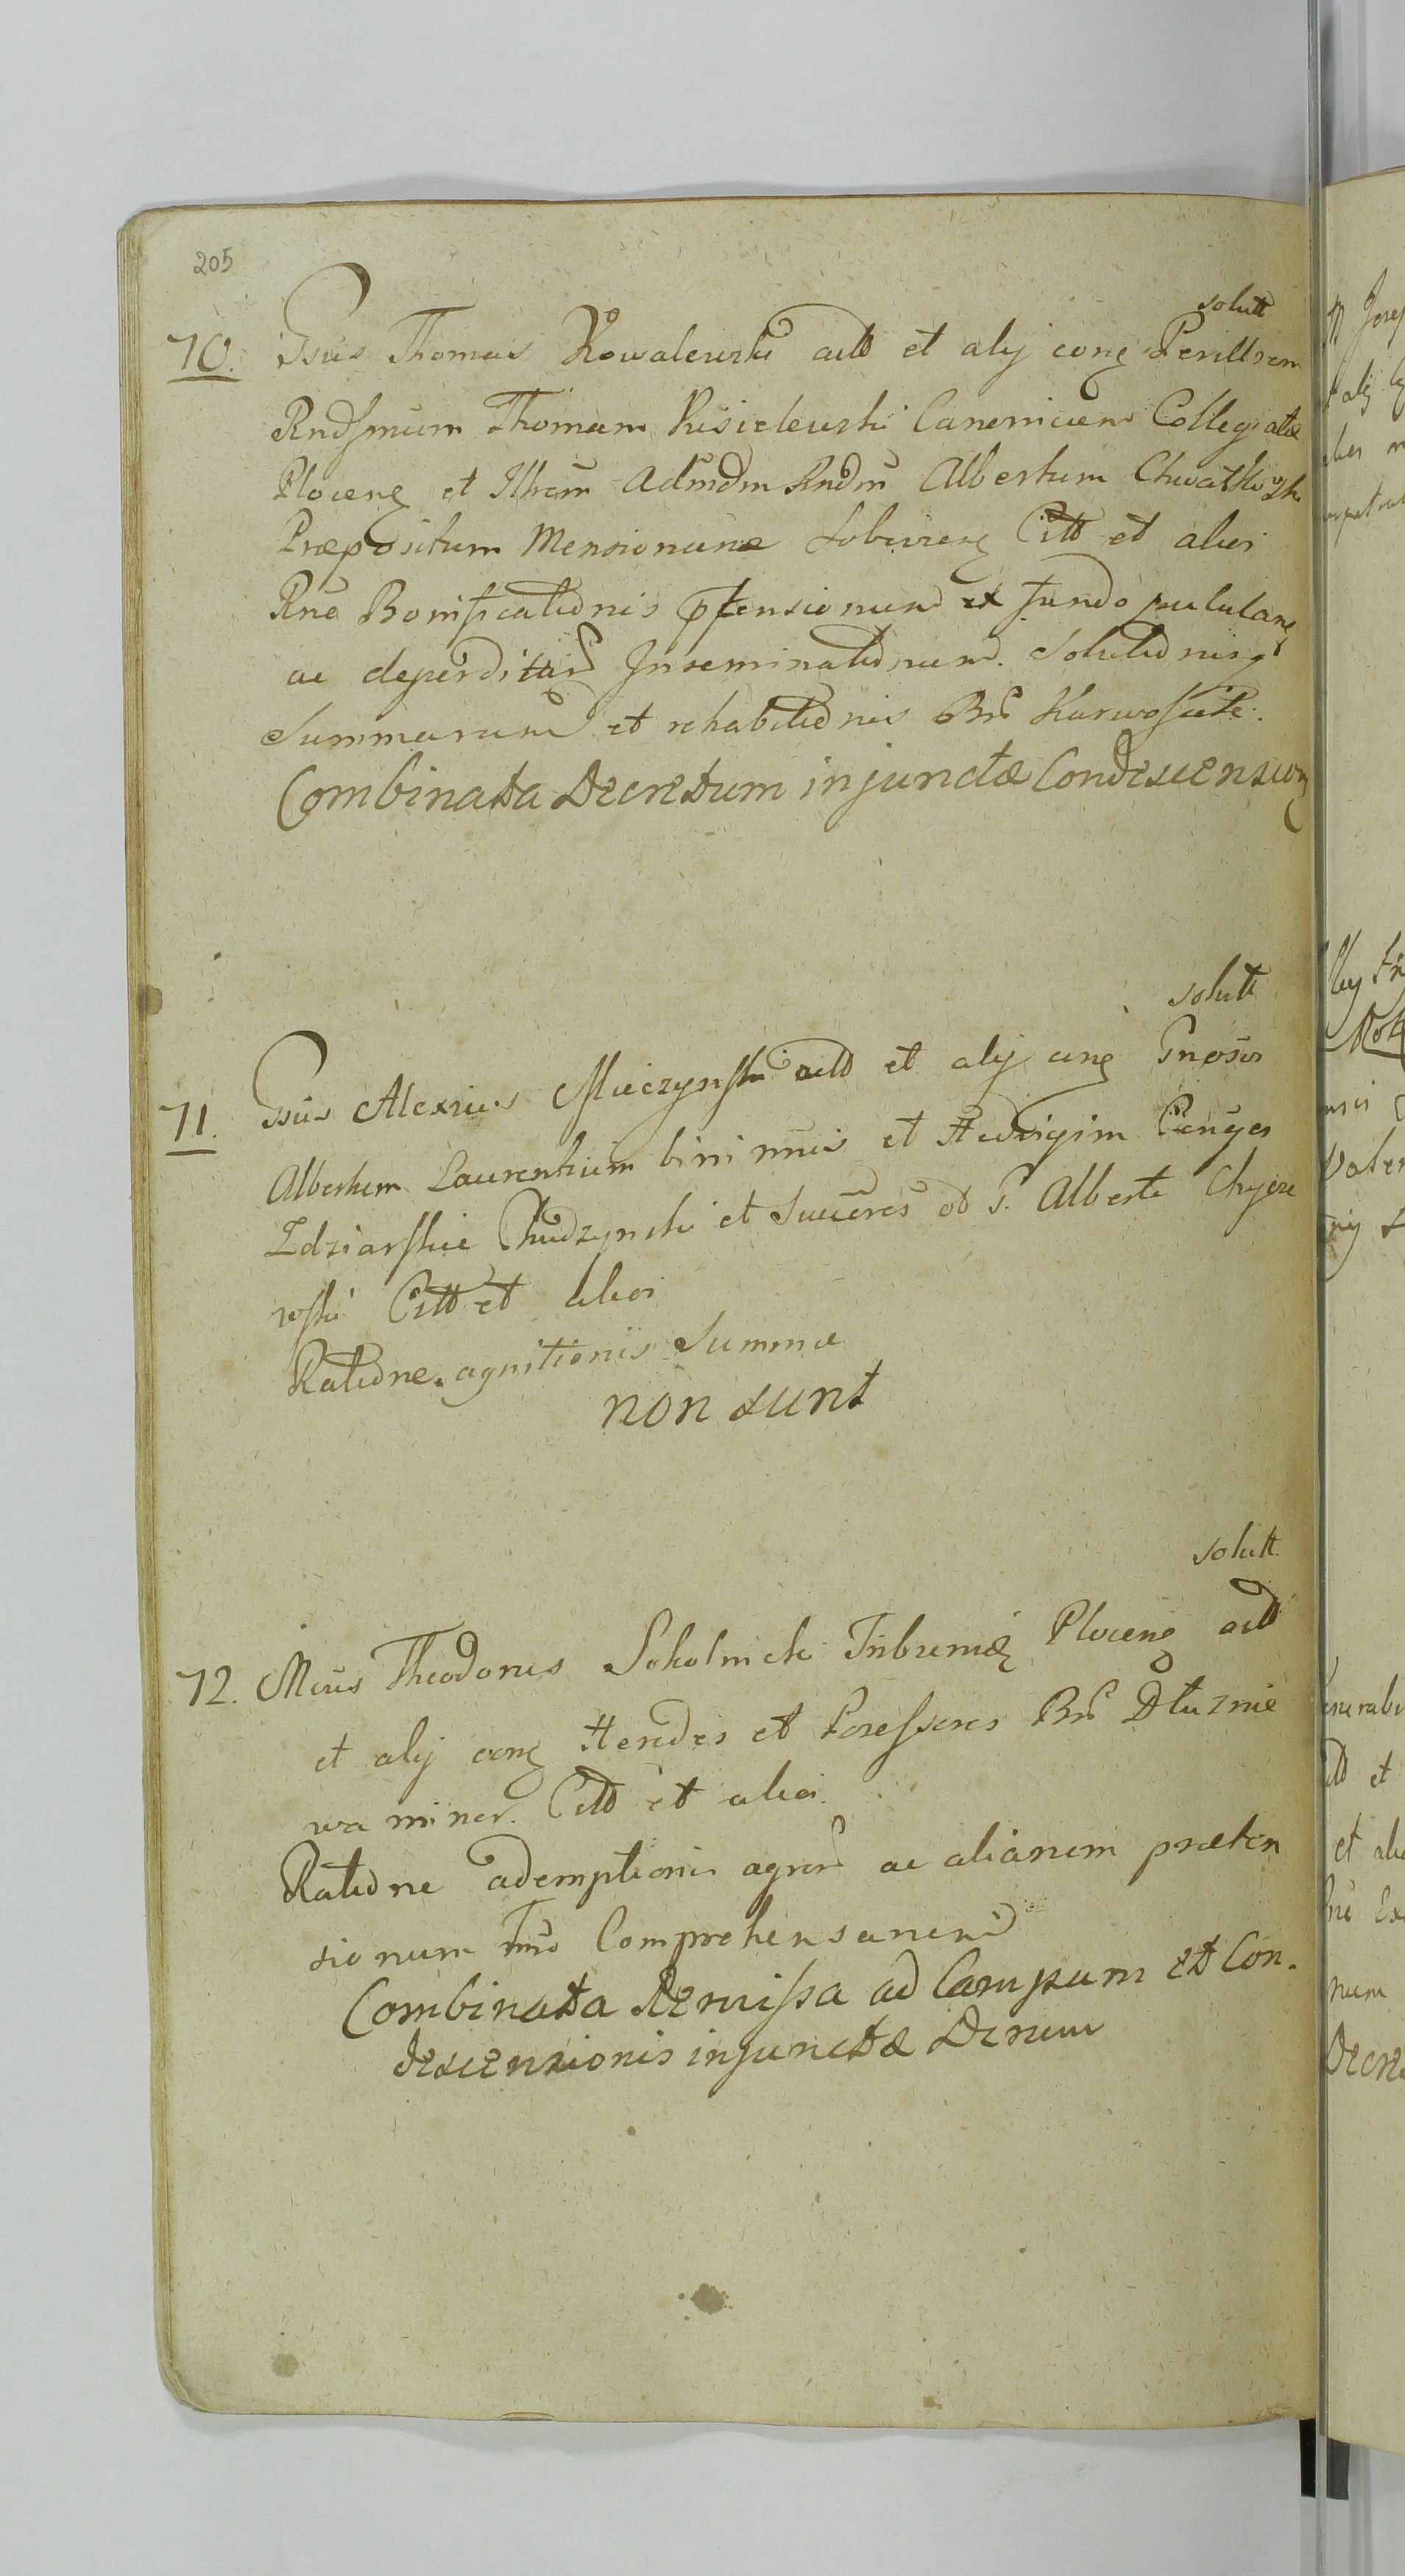 205
solutt
70. Gssus Thomas Kowalewski actt et alij cong Perillrem
Rndssmum Thomam Kisielewski Canonicum Collegiatæ
Plocens et Illrem Admdm Rndm Albertum Chwatkowski
Præpositum Mensionariæ Citt et alios
Rne Bonificationis ptensionum ex fundo pululans
ac deperditar Inseminationum. Solutionisq
Summarum et rehabitionis Br Karwosieki.
Combinata Decretum injunctæ Condescension
solutt
71. Gssus Alexius Mieczynski actt et alij cong Gnosos
Albertum Laurentium bini nnis et Hedvigim Conges
Zdziarskie Chudzynski et Succeres od G. Alberti Chycze
wski Citt et alios
Ratione agnitionis Summæ
non sunt
solutt
72. Mcus Theodorus Sokolnicki Tribunus Plocens actt
et alij cong Heredes et Possessores Br Dłuznie
wa minor. Citt et alios.
Ratione ademptionis agror ac aliarum præten
sionum Comprehensarum
Combinata Remissa ad Campum et Con.
descensionis injunctæ Decretum